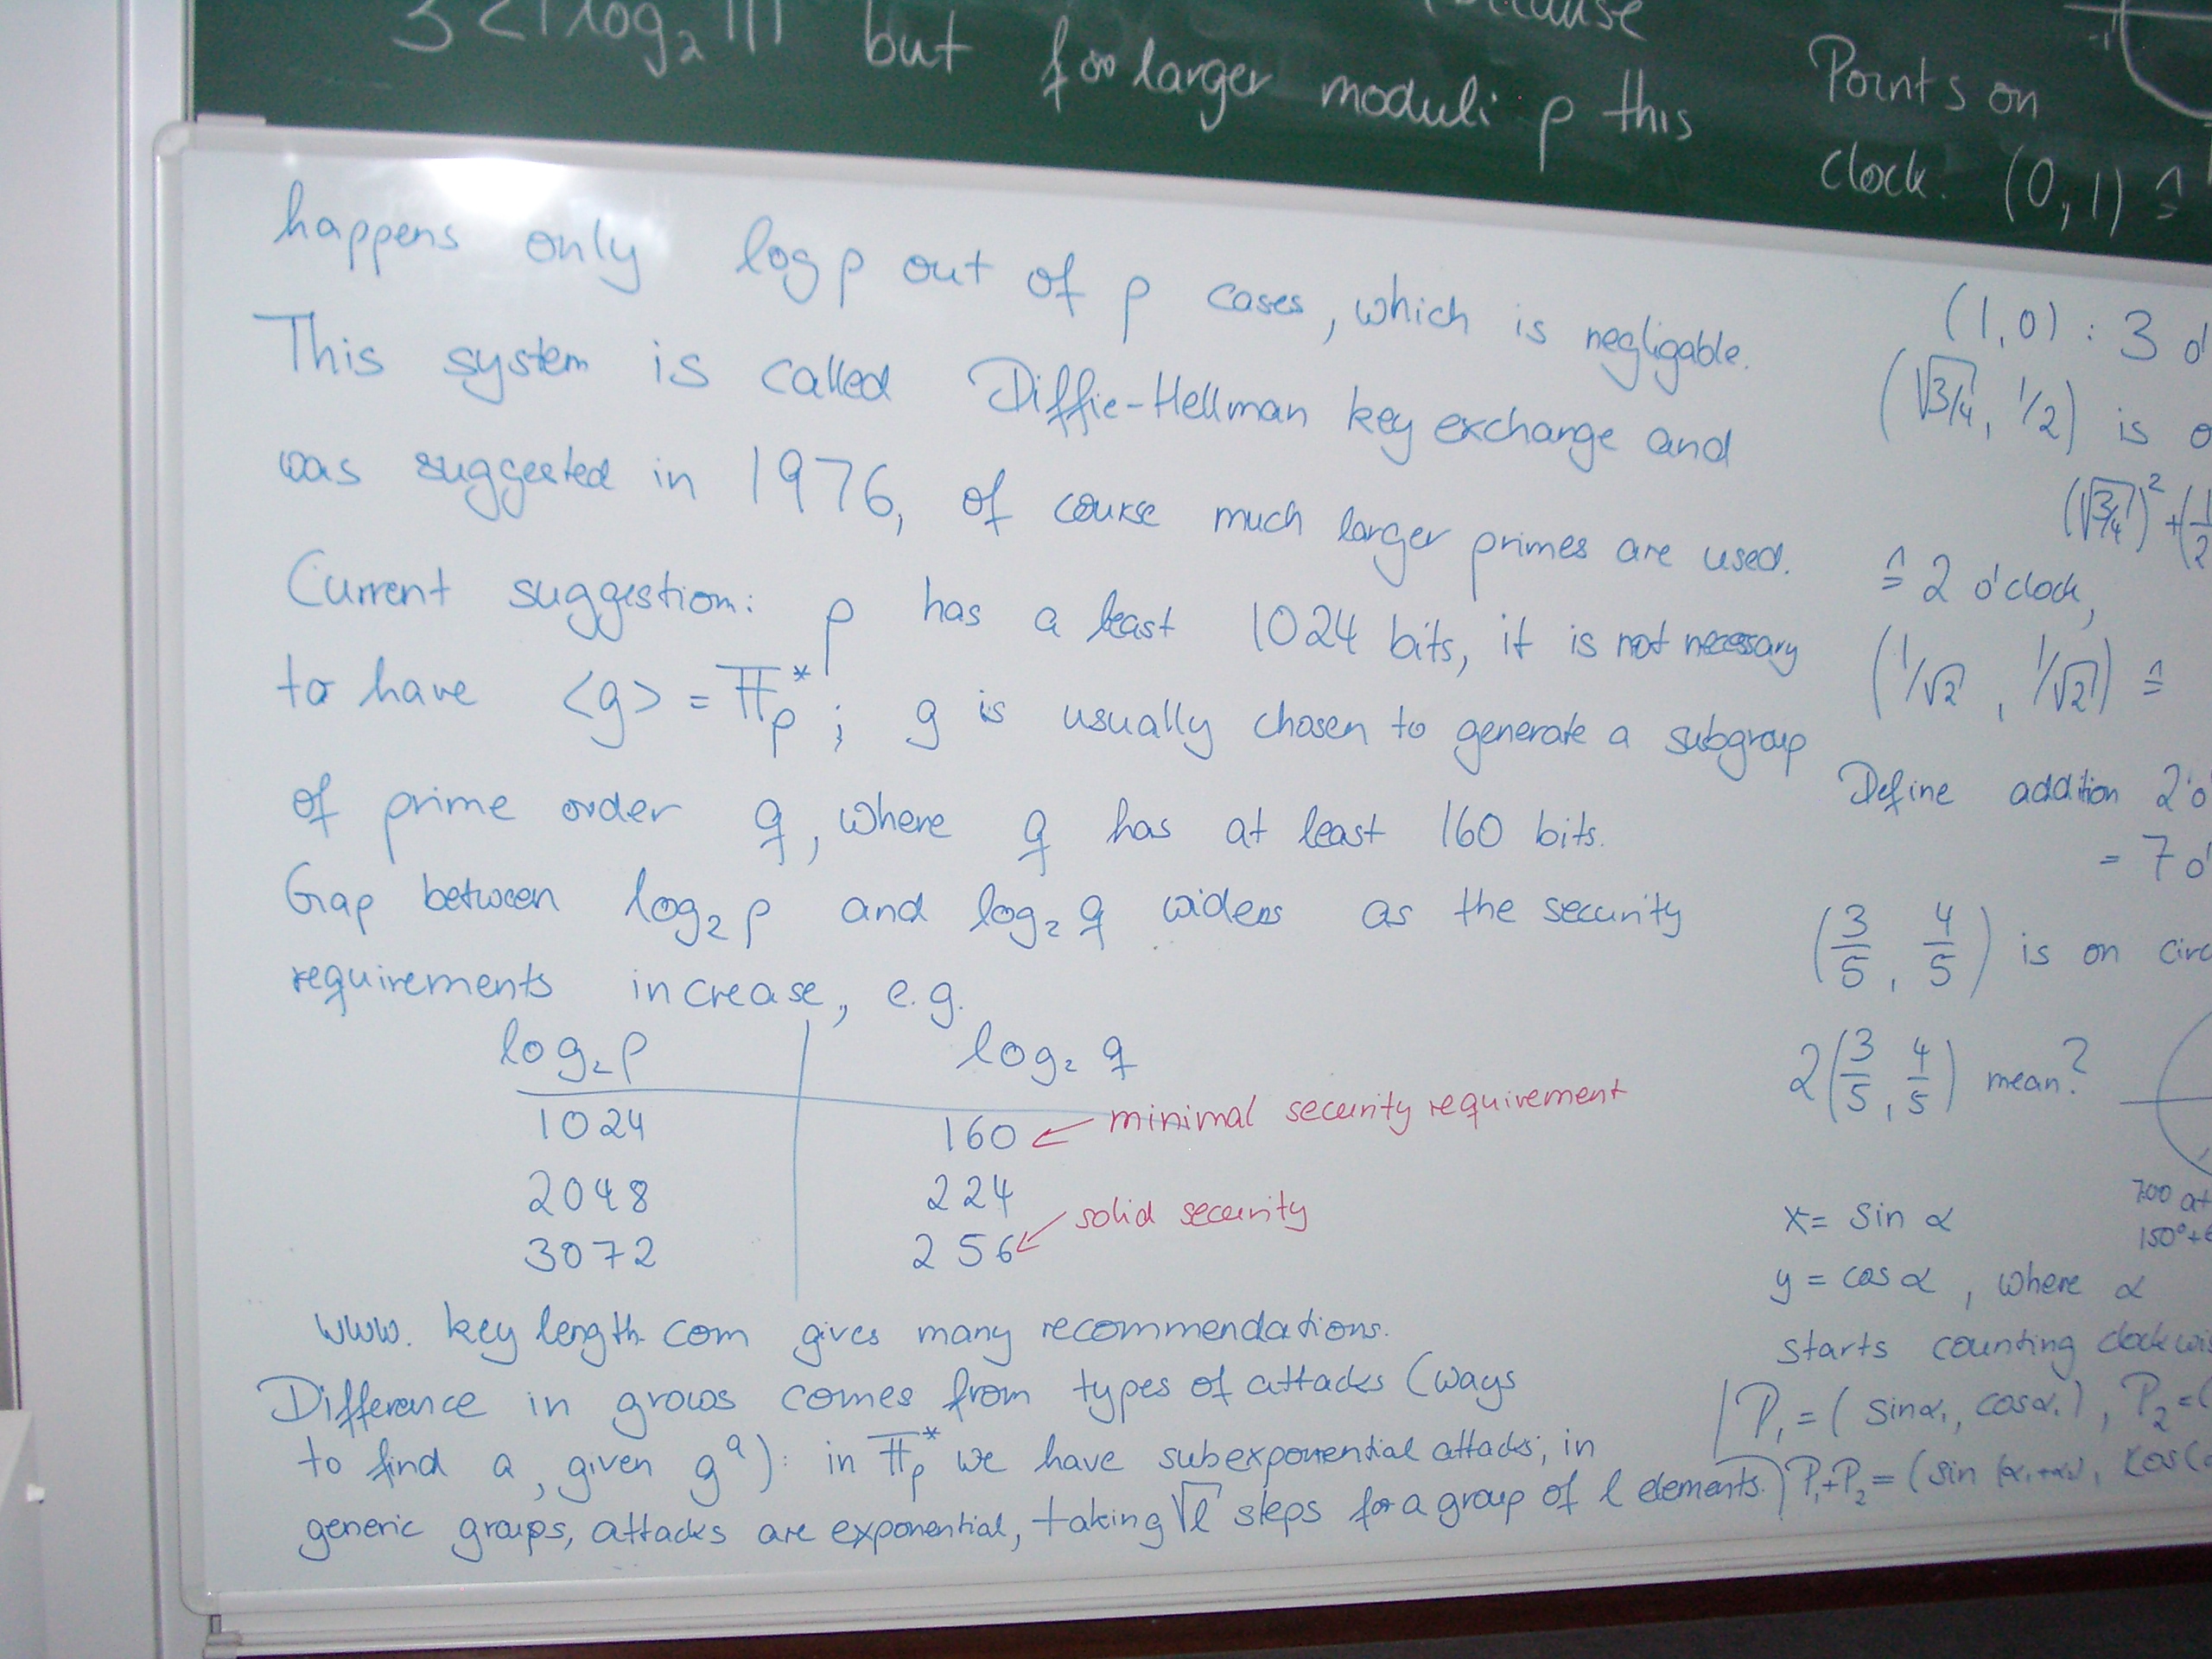 but for larger moduli p this
happens only log p out of p cases, which is negligable.
This system is called Diffie-Hellman key exchange and
was suggested in 1976, of course much larger primes are used.
Current suggestion: p has a least 1024 bits, it is not necessary
to have <g> = 𝔽p*; g is usually chosen to generate a subgroup
of prime order q, where q has at least 160 bits.
Gap between log₂ p and log₂ q widens as the security
requirements increase, e.g.
log₂ p log₂ q
1024 160 ← minimal security requirement
2048 224
3072 256 ← solid security
www.keylength.com gives many recommendations.
Difference in grows comes from types of attacks (ways
to find a, given gᵃ): in 𝔽p* we have subexponential attacks; in
generic groups, attacks are exponential, taking √l steps for a group of l elements.)
Points on
clock. (0,1) ≙
(1,0) : 3 o'
(√3/4, 1/2) is o
(√3/4)² + (1/2
≙ 2 o'clock,
(1/√2, 1/√2) ≙
Define addition 2 o'
= 7 o'
(3/5, 4/5) is on circ
2(3/5, 4/5) mean?
7:00 at
150°+6
x = sin α
y = cos α, where α
starts counting clockwis
P₁ = (sin α₁, cos α₁), P₂ = (
P₁+P₂ = (sin (α₁+α₂), cos(α